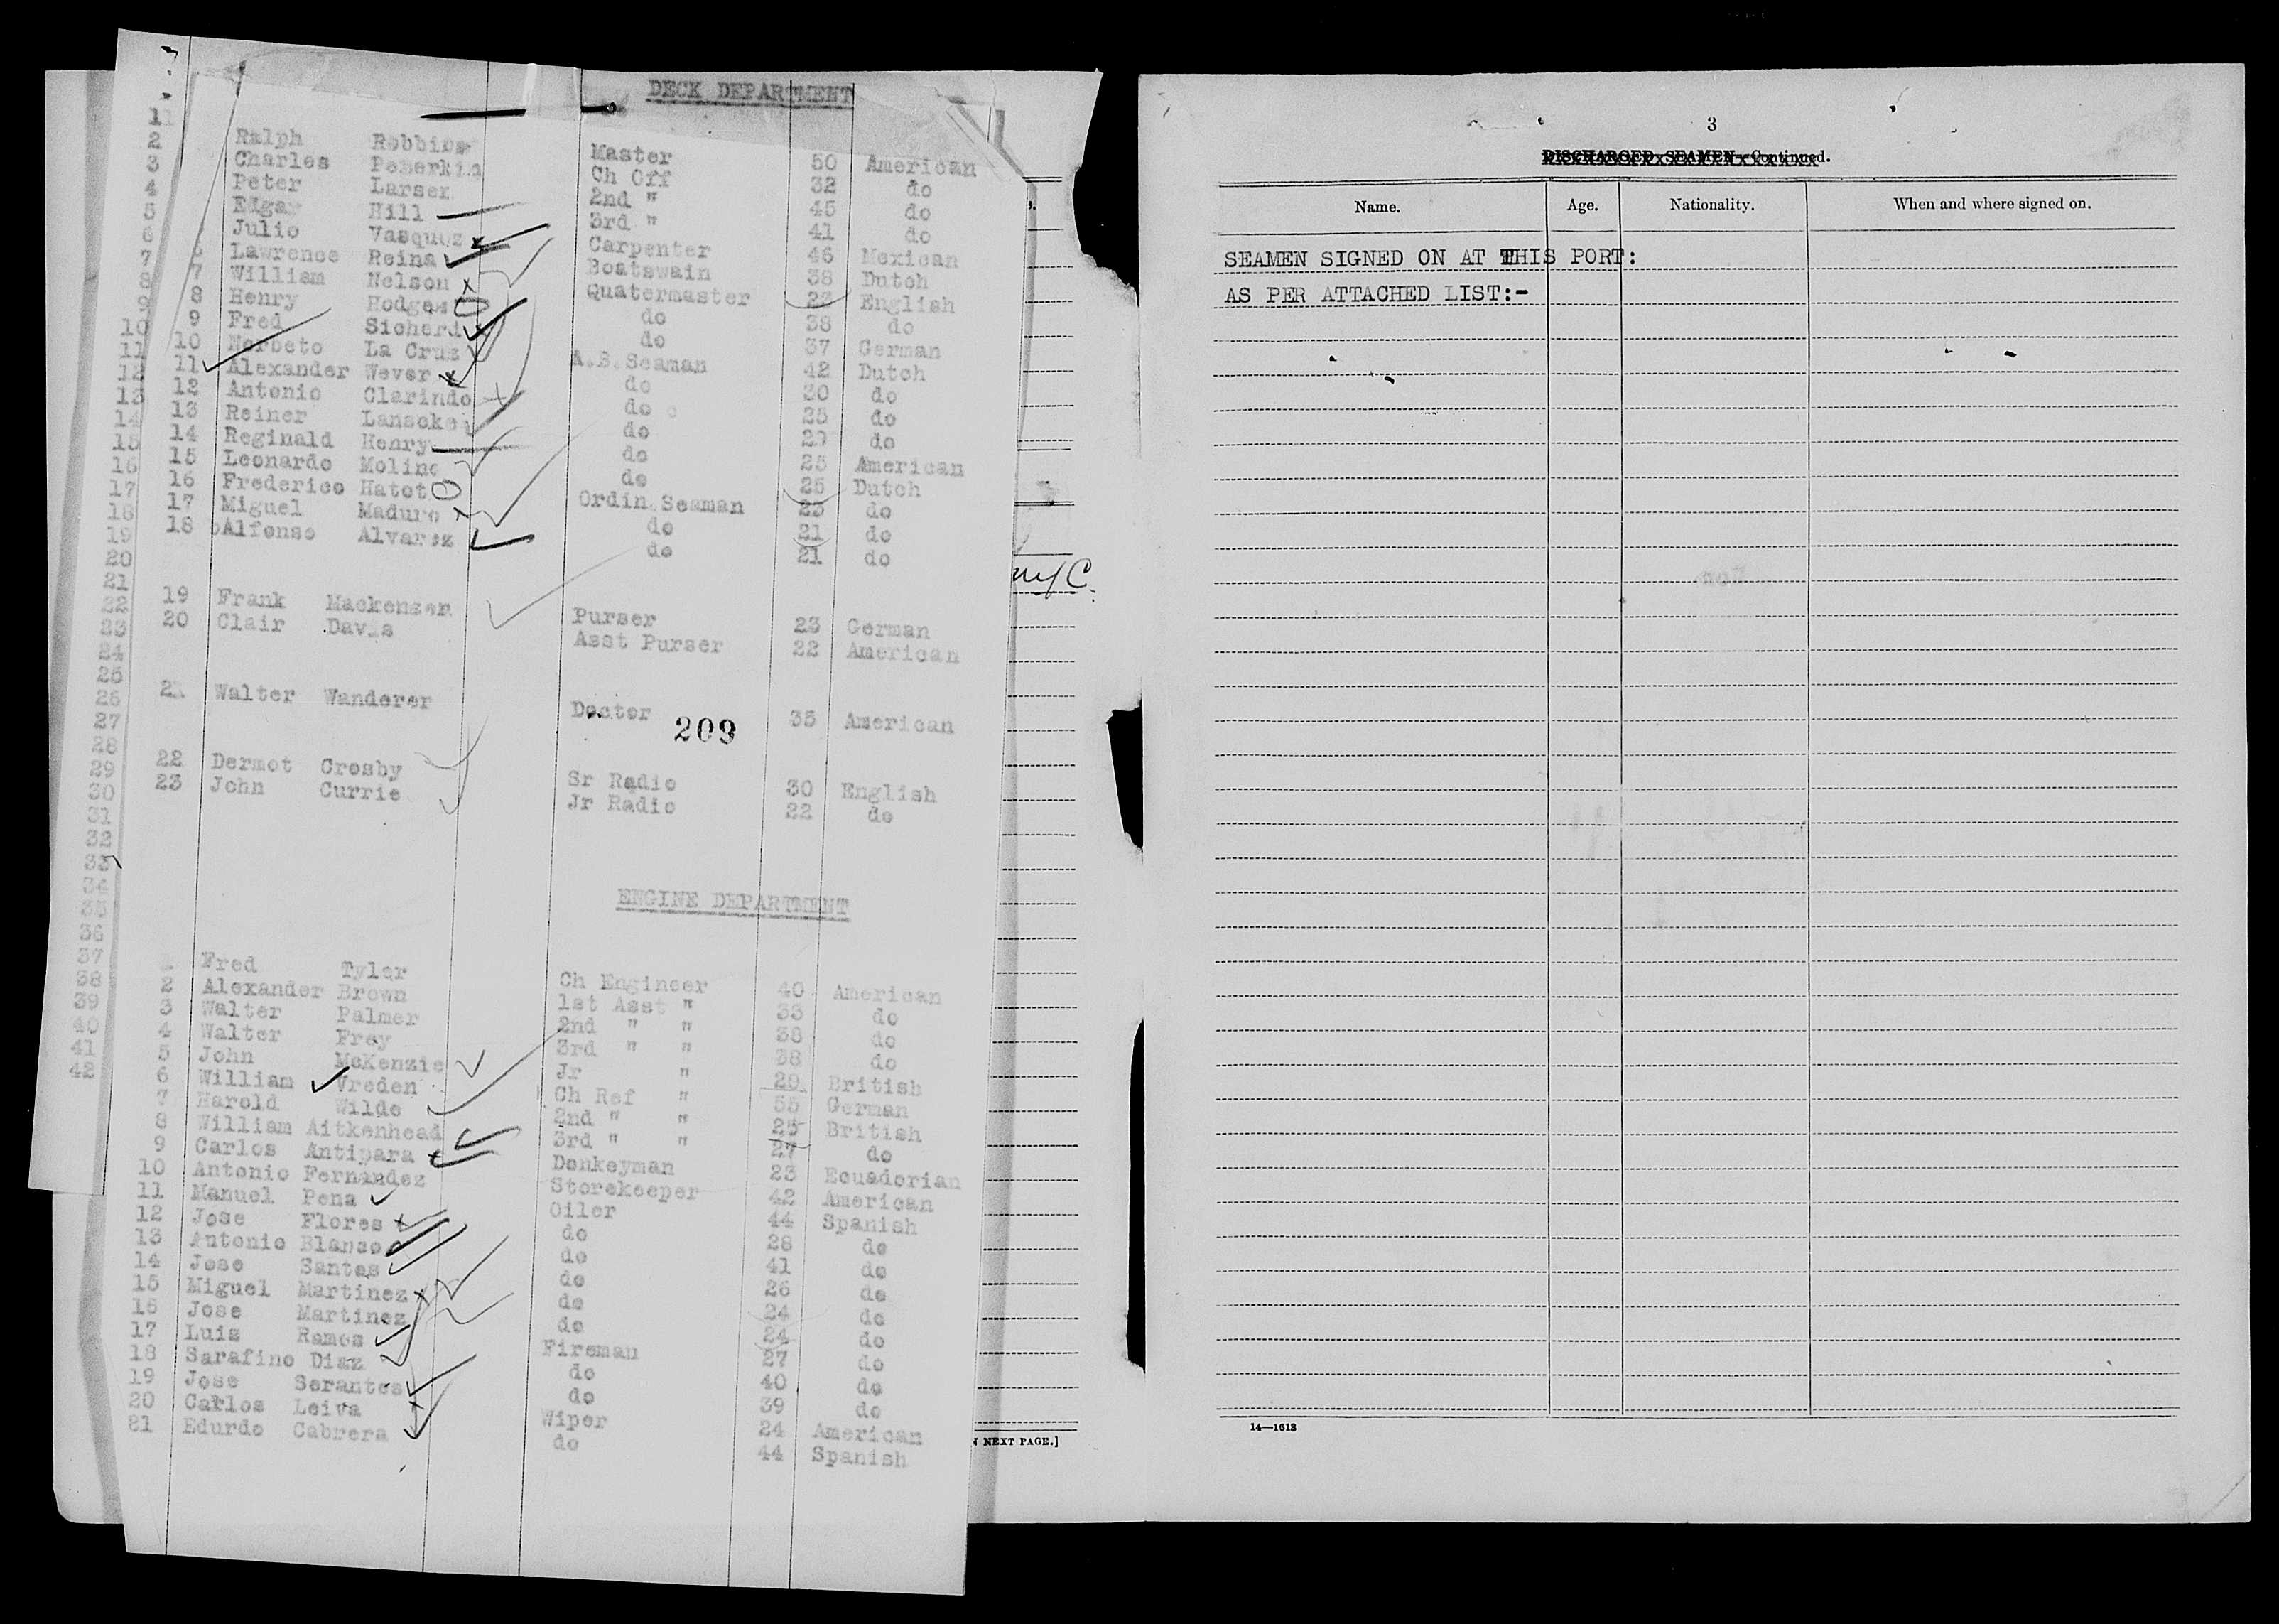 DECK DEPARTMENT
Ralph Robbins Master 50 American
Charles Pemerkin Ch Off 32 do
Peter Larsen 2nd " 45 do
Edgar Hill 3rd " 41 do
Julio Vasquez Carpenter 46 Mexican
6 Lawrence Reina Boatswain 38 Dutch
7 William Nelson Quatermaster 23 English
8 Henry Hodges do 38 do
9 Fred Sicherd do 37 German
10 Norbeto La Cruz A.B.Seaman 42 Dutch
11 Alexander Wever do 30 do
12 Antonio Clarindo do 25 do
13 Reiner do 29 do
14 Reginald Henry do 25 American
15 Leonardo Moline do 25 Dutch
16 Frederico Hatot Ordin.Seaman 23 do
17 Miguel Maduro do 21 do
18 Alfonso Alvarez do 21 do
19 Frank Mackensen Purser 23 German
20 Clair Davis Asst Purser 22 American
21 Walter Wanderer Doctor 35 American
209
22 Dermot Crosby Sr Radio 30 English
23 John Currie Jr Radio 22 do
ENGINE DEPARTMENT
Fred Tyler Ch Engineer 40 American
2 Alexander Brown 1st Asst " 33 do
3 Walter Palmer 2nd " " 38 do
4 Walter Frey 3rd " " 38 do
5 John McKenzie Jr " 29 British
6 William Vreden Ch Ref " 55 German
7 Harold Wilde 2nd " " 25 British
8 William Aitkenhead 3rd " " 27 do
9 Carlos Antipara Donkeyman 23 Ecuadorian
10 Antonio Fernandez Storekeeper 42 American
11 Manuel Pena Oiler 44 Spanish
12 Jose Flores do 28 do
13 Antonio Blanco do 41 do
14 Jose Santos do 26 do
15 Miguel Martinez do 24 do
16 Jose Martinez do 24 do
17 Luis Ramos Fireman 27 do
18 Sarafino Diaz do 40 do
19 Jose Serantes do 39 do
20 Carlos Leiva Wiper 24 American
21 Edurdo Cabrera do 44 Spanish
11
2
3
4
5
6
7
8
9
10
11
12
13
14
15
16
17
18
19
20
21
22
23
24
25
26
27
28
29
30
31
32
33
34
35
36
37
38
39
40
41
42
NEXT PAGE.]
3
DISCHARGED SEAMEN—Continued.
Name. Age. Nationality. When and where signed on.
SEAMEN SIGNED ON AT THIS PORT:
AS PER ATTACHED LIST:-
14—1613